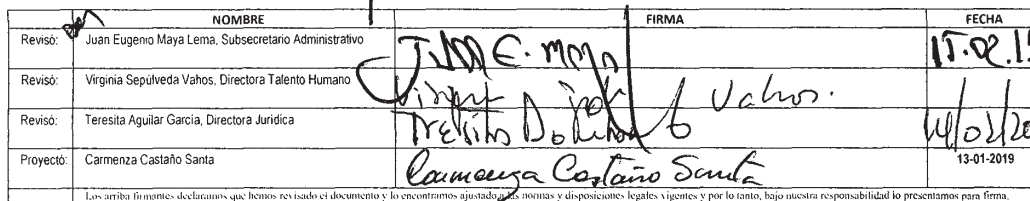 NOMBRE FIRMA FECHA
Revisó: Juan Eugenio Maya Lema, Subsecretario Administrativo Juan E. Maya 15.02.19
Revisó: Virginia Sepúlveda Vahos, Directora Talento Humano Vahos.
Revisó: Teresita Aguilar García, Directora Jurídica Teresita 14/02/20
Proyectó: Carmenza Castaño Santa Carmenza Castaño Santa 13-01-2019
Los arriba firmantes declaramos que hemos revisado el documento y lo encontramos ajustado a las normas y disposiciones legales vigentes y por lo tanto, bajo nuestra responsabilidad lo presentamos para firma.